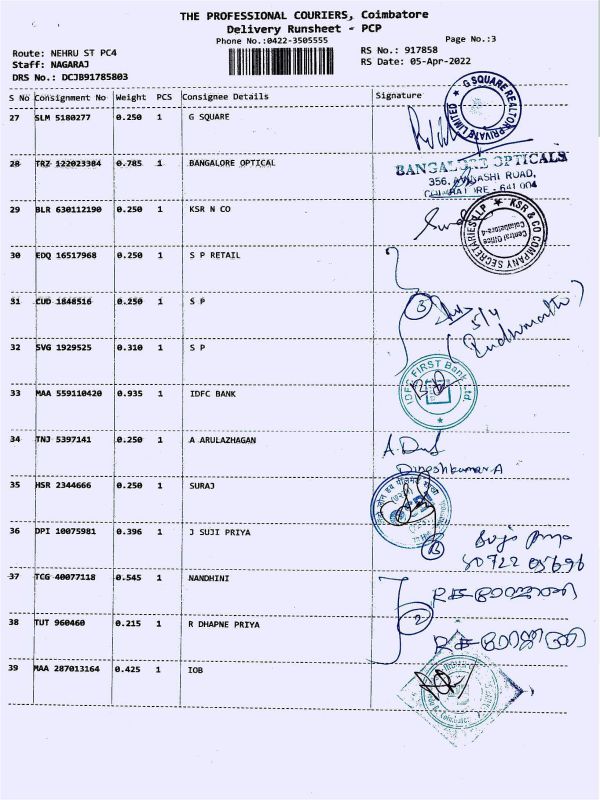 THE PROFESSIONAL COURIERS, Coimbatore
Delivery Runsheet - PCP
Phone No.:0422-3505555
Page No.:3
Route: NEHRU ST PC4
RS No.: 917858
Staff: NAGARAJ
RS Date: 05-Apr-2022
DRS No.: DCJB91785803
S No Consignment No Weight PCS Consignee Details Signature
27 SLM 5180277 0.250 1 G SQUARE
G SQUARE REALTOR PRIVATE LIMITED
28 TRZ 122023384 0.785 1 BANGALORE OPTICAL
BANGALORE OPTICALS
356, ROAD,
641 004
29 BLR 630112190 0.250 1 KSR N CO
KSR & CO COMPANY SECRETARIES LLP
Central Office
Coimbatore-4
30 EDQ 16517968 0.250 1 S P RETAIL
31 CUD 1848516 0.250 1 S P
3
5/4
32 SVG 1929525 0.310 1 S P
33 MAA 559110420 0.935 1 IDFC BANK
IDFC FIRST Bank Ltd.
34 TNJ 5397141 0.250 1 A ARULAZHAGAN
Dineshkumar.A
35 HSR 2344666 0.250 1 SURAJ
36 DPI 10075981 0.396 1 J SUJI PRIYA
37 TCG 40077118 0.545 1 NANDHINI
2
38 TUT 960460 0.215 1 R DHAPNE PRIYA
39 MAA 287013164 0.425 1 IOB